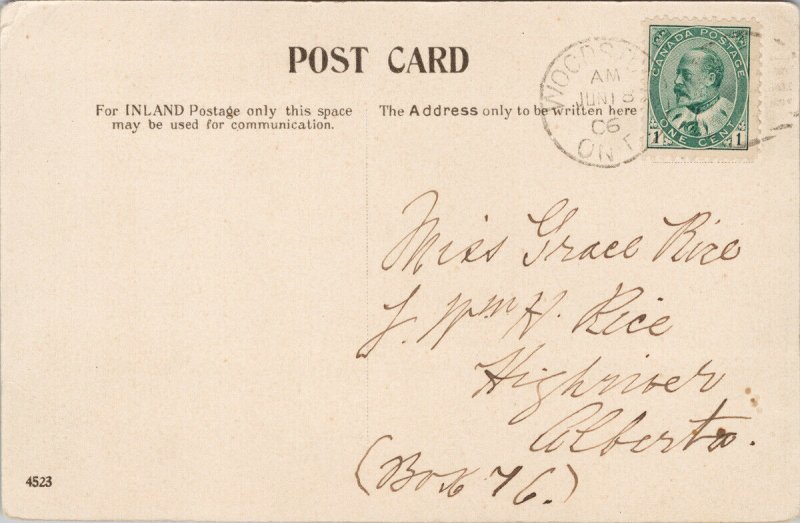 POST CARD
For INLAND Postage only this space
may be used for communication.
The Address only to be written here
WOODS
AM
JUN 18
06
ONT
CANADA POSTAGE
1 ONE CENT 1
Miss Grace Rice
Wm H. Rice
Highriver
Alberta.
(Box 76.)
4523